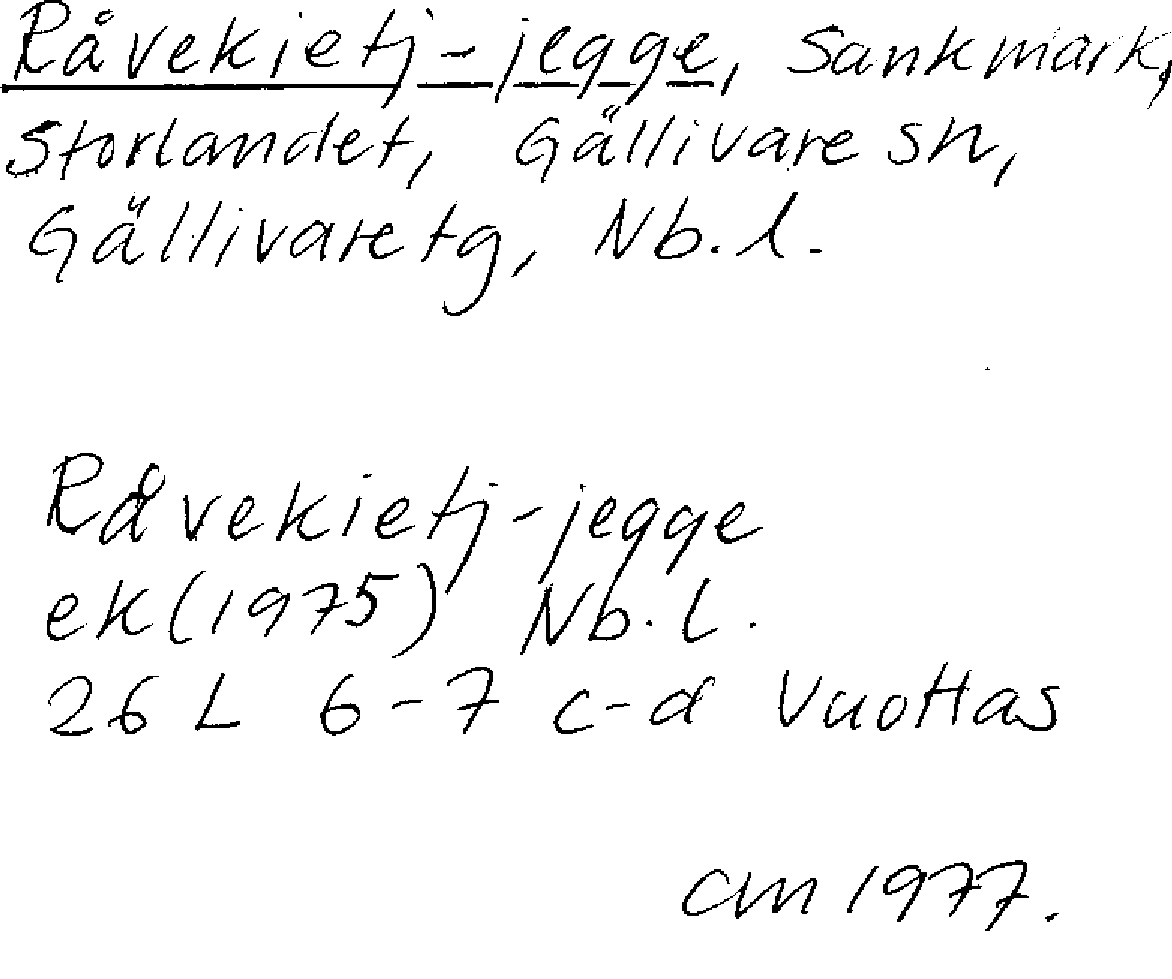 Råvekietj-jegge, Sankmark,
Storlandet, Gällivare sn,
Gällivare tg, Nb.l.
Råvekietj-jegge
ek(1975) Nb.l.
26 L 6-7 c-d Vuottas
CM 1977.